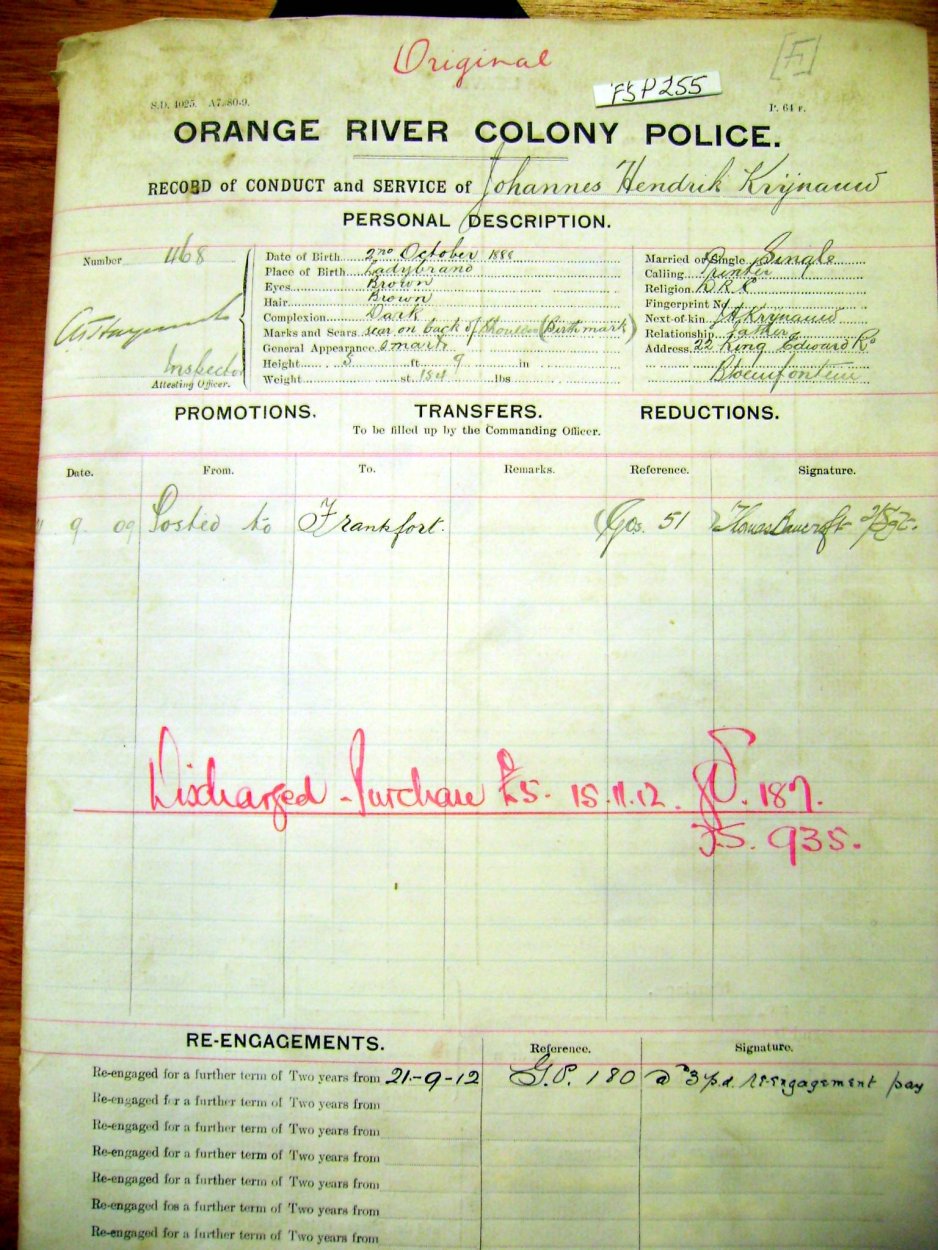 Original
[F]
FSP255
S.D. 4025. A7.-80-9.
P. 64 F.
ORANGE RIVER COLONY POLICE.
RECORD of CONDUCT and SERVICE of Johannes Hendrik Krijnauw
PERSONAL DESCRIPTION.
Number 468
Inspector
Attesting Officer.
Date of Birth 2nd October 1888
Place of Birth Ladybrand
Eyes Brown
Hair Brown
Complexion Dark
Marks and Scars scar on back of Shoulder (Birthmark)
General Appearance smart
Height 5 ft. 9 in
Weight st. 154 lbs
Married or Single Single
Calling Printer
Religion D.R.C
Fingerprint No
Next-of-kin Krijnauw
Relationship father
Address 22 King Edward Rd
Bloemfontein
PROMOTIONS. TRANSFERS. REDUCTIONS.
To be filled up by the Commanding Officer.
Date. From. To. Remarks. Reference. Signature.
9 09 Posted to Frankfort. 51
Discharged - Purchase £5. 15.11.12. 187.
935.
RE-ENGAGEMENTS. Reference. Signature.
Re-engaged for a further term of Two years from 21-9-12 G.P. 180 @ 3d p.d. re-engagement pay
Re-engaged for a further term of Two years from
Re-engaged for a further term of Two years from
Re-engaged for a further term of Two years from
Re-engaged for a further term of Two years from
Re-engaged for a further term of Two years from
Re-engaged for a further term of Two years from